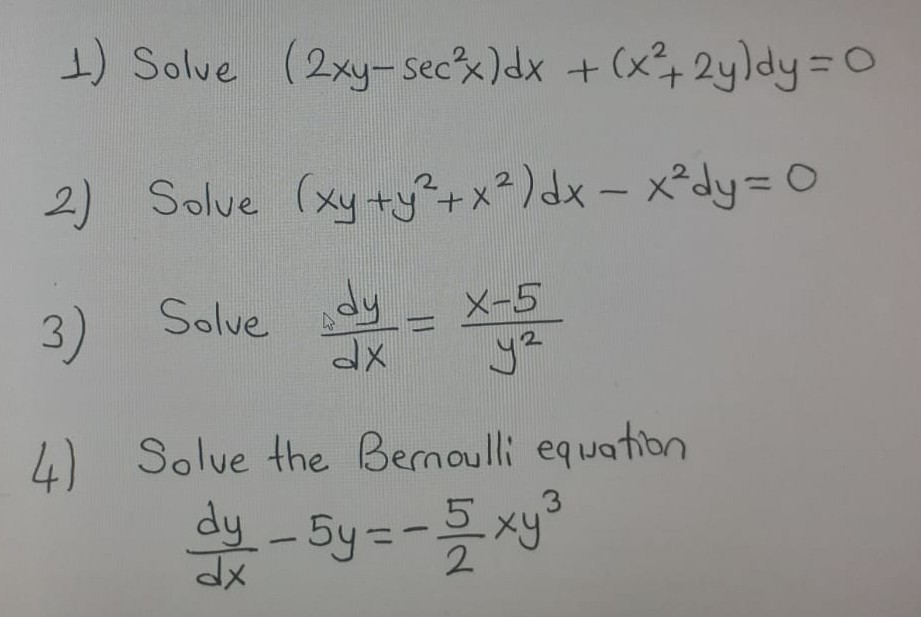 1) Solve (2xy-sec²x)dx + (x²+2y)dy=0
2) Solve (xy+y²+x²)dx - x²dy=0
3) Solve dy/dx = x-5/y²
4) Solve the Bernoulli equation
dy/dx - 5y = - 5/2 xy³